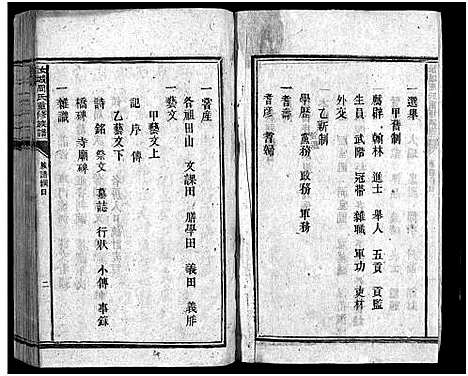 一選舉
甲舊制
薦辟 翰林 進士 舉人 五貢 貢監
生員 武階 冠帶 雜職 軍功 吏材
外交
乙新制
學歷 黨務 政務 軍務
一耆壽
耆彥 耆婦
一嘗產
各祖田山 文課田 膳學田 義田 義雁
一藝文
甲藝文上
記 序 傳
乙藝文下
詩 銘 祭文 墓誌 行狀 小傳 事錄
橋碑 寺廟碑
一雜識
汝城周氏重修族譜
族譜綱目
二